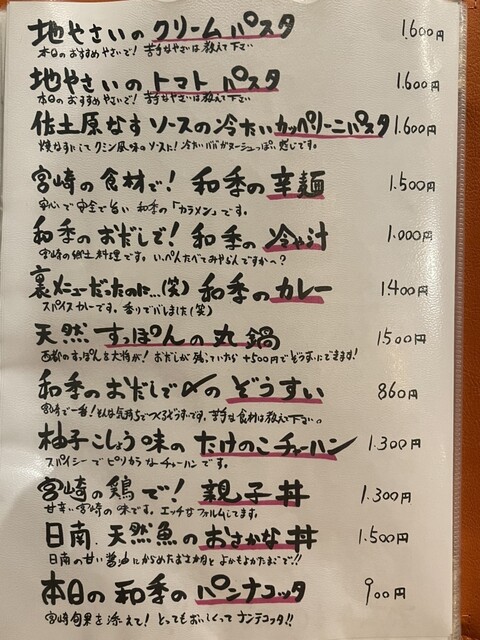 地やさいの クリームパスタ 1.600円
本日のおすすめやさいで! 苦手なやさいは教えて下さい
地やさいの トマト パスタ 1.600円
本日のおすすめやさいで! 苦手なやさいは教えて下さい
佐土原なす ソースの冷たいカッペリーニパスタ 1.600円
焼なすにしてクミン風味のソースに! 冷たいババガヌーシュっぽい感じです。
宮崎の食材で! 和季の辛麺 1.500円
安心で安全で旨い 和季の「カラメン」です。
和季のおだしで! 和季の冷や汁 1.000円
宮崎の郷土料理です。いっぺんたべてみやらんですか〜?
裏メニューだったのに…(笑) 和季のカレー 1.400円
スパイスカレーです。香りでバレました(笑)
天然 すっぽんの丸鍋 1500円
西都のすっぽんを大将が! おだしが残っていたら +500円でぞうすいにできます!
和季のおだしで〆の ぞうすい 860円
宮崎で一番! そんな気持ちでつくるぞうすいです。苦手な食材は教えて下さい。
柚子こしょう味の たけのこチャーハン 1.300円
スパイシーでピリカラなチャーハンです。
宮崎の鶏で! 親子丼 1.300円
甘辛い宮崎の味です。エッチなフォルムしてます。
日南. 天然魚のおさかな丼 1.500円
日南の甘い醤油にからめたおさかなとよかもよかたまごで!!
本日の和季のパンナコッタ 900円
宮崎旬果を添えて! とってもおいしくってナンテコッタ!!